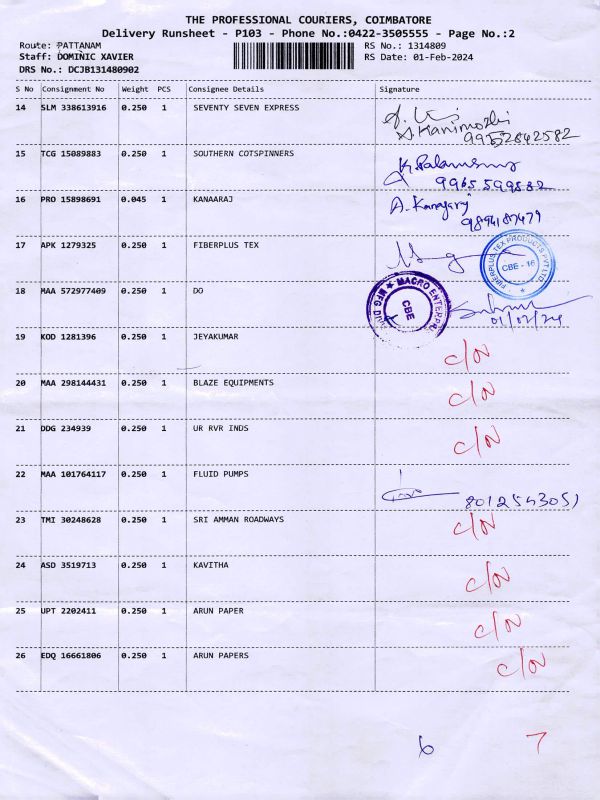 THE PROFESSIONAL COURIERS, COIMBATORE
Delivery Runsheet - P103 - Phone No.:0422-3505555 - Page No.:2
Route: PATTANAM RS No.: 1314809
Staff: DOMINIC XAVIER RS Date: 01-Feb-2024
DRS No.: DCJB131480902
S No Consignment No Weight PCS Consignee Details Signature
14 SLM 338613916 0.250 1 SEVENTY SEVEN EXPRESS
A.Kanimozhi
9952842582
15 TCG 15089883 0.250 1 SOUTHERN COTSPINNERS
9965599882
16 PRO 15898691 0.045 1 KANAARAJ A. Kanagaraj
9894187479
17 APK 1279325 0.250 1 FIBERPLUS TEX
FIBERPLUS TEX PRODUCTS PVT LTD
CBE - 16
18 MAA 572977409 0.250 1 DO
MACRO ENTERPRI
MFG DI
CBE
01/02/24
19 KOD 1281396 0.250 1 JEYAKUMAR C/N
20 MAA 298144431 0.250 1 BLAZE EQUIPMENTS C/N
21 DDG 234939 0.250 1 UR RVR INDS C/N
22 MAA 101764117 0.250 1 FLUID PUMPS
8012543051
23 TMI 30248628 0.250 1 SRI AMMAN ROADWAYS C/N
24 ASD 3519713 0.250 1 KAVITHA C/N
25 UPT 2202411 0.250 1 ARUN PAPER C/N
26 EDQ 16661806 0.250 1 ARUN PAPERS C/N
6 7